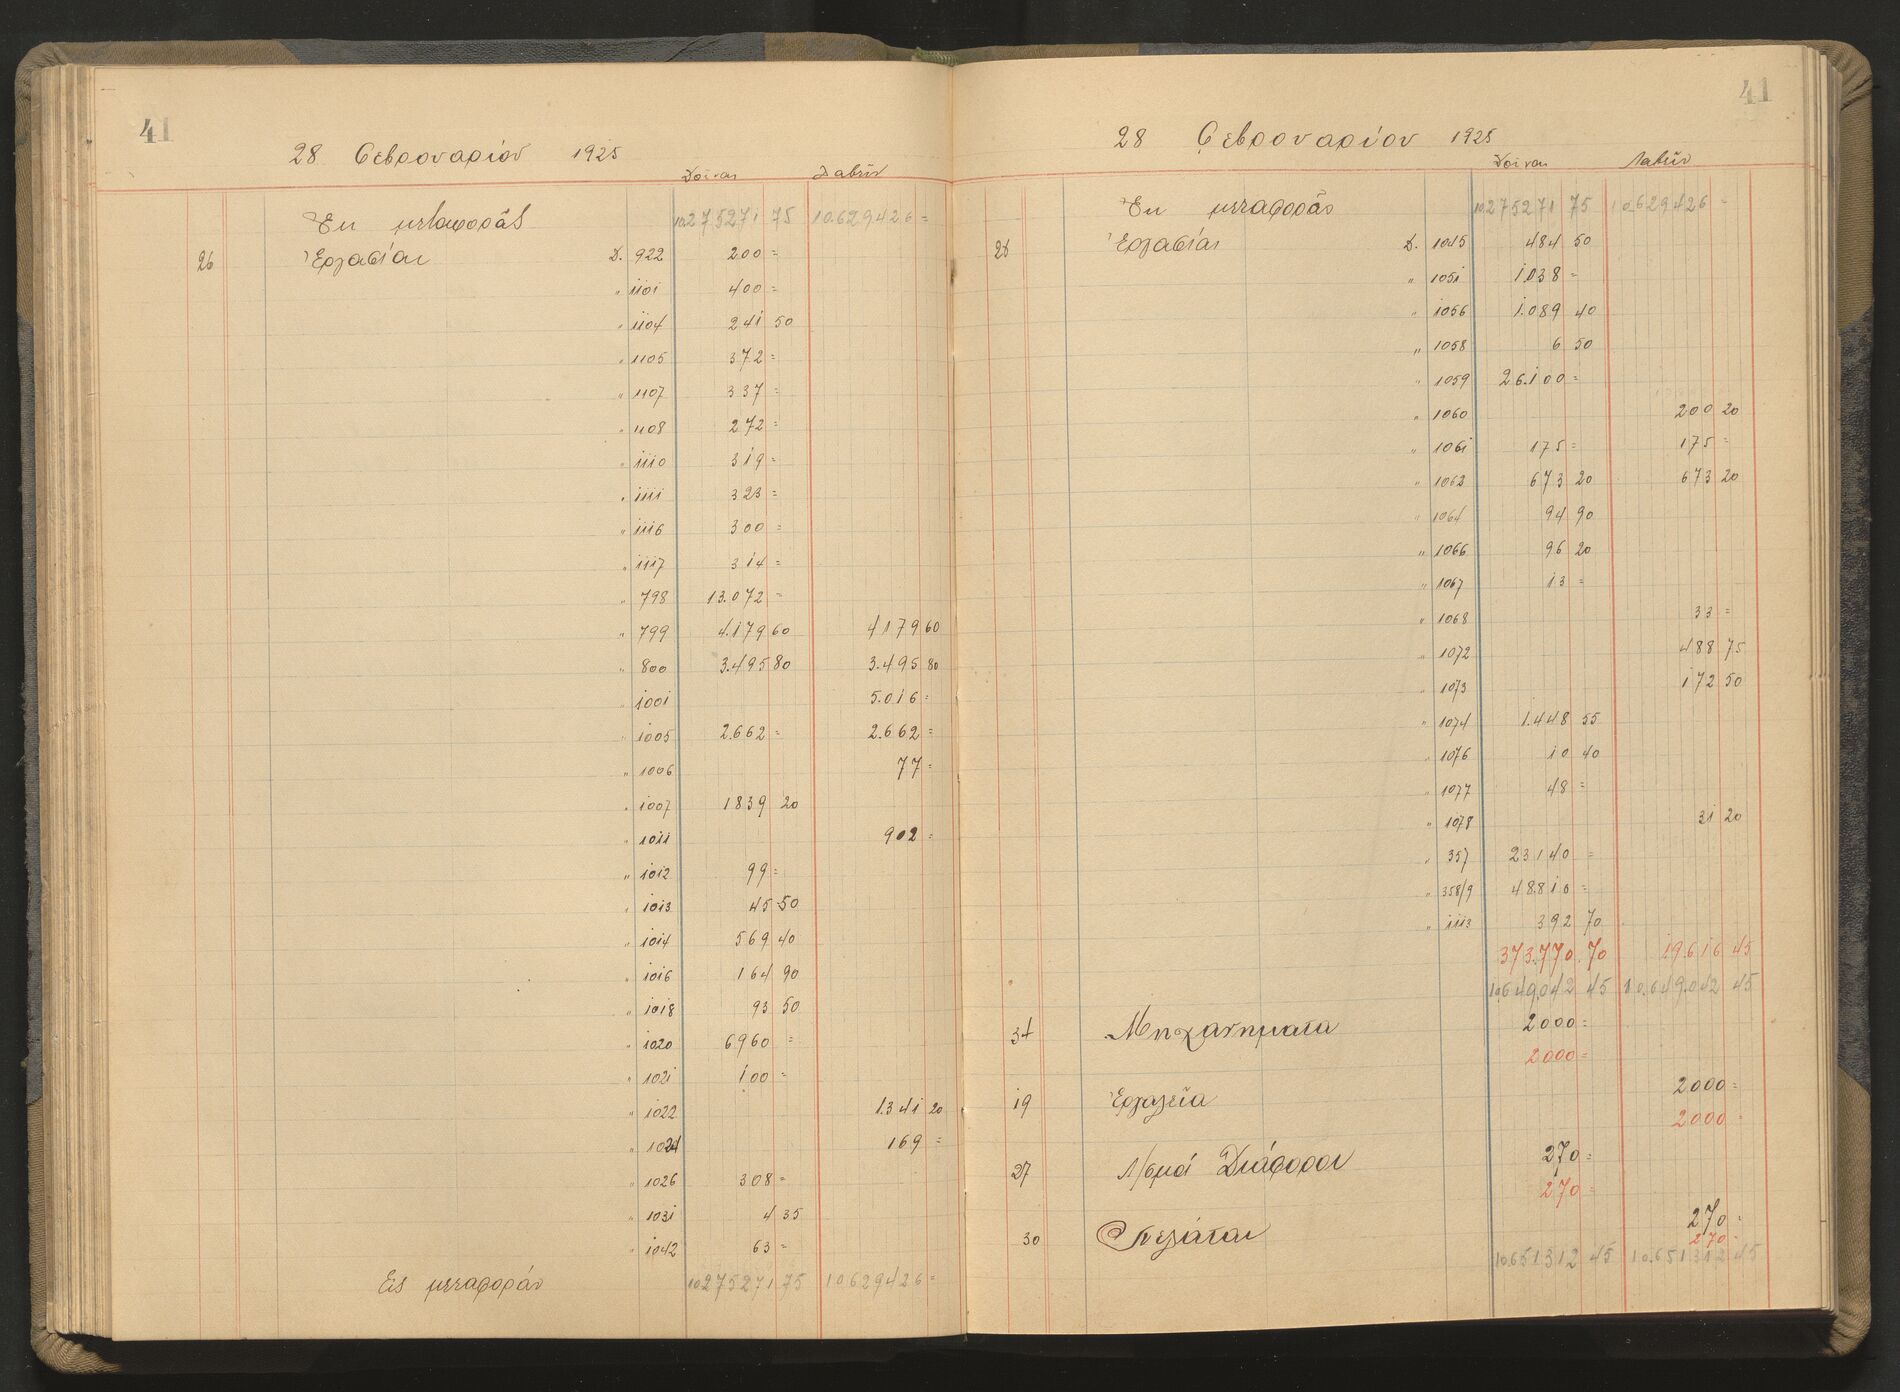 41
28 Φεβρουαρίου 1925
Δοῦναι Λαβεῖν
Ἐκ μεταφορᾶς 10.275271 75 10.629426 =
26 Ἐργασίαι Δ. 922 200 =
" 1101 400 =
" 1104 241 50
" 1105 372 =
" 1107 337 =
" 1108 272 =
" 1110 319 =
" 1111 323 =
" 1116 300 =
" 1117 314 =
" 798 13.072 =
" 799 4.179 60 4179 60
" 800 3.495 80 3.495 80
" 1001 5.016 =
" 1005 2.662 = 2.662 =
" 1006 77 =
" 1007 1839 20
" 1011 902 =
" 1012 99 =
" 1013 45 50
" 1014 569 40
" 1016 164 90
" 1018 93 50
" 1020 6960 =
" 1021 100 =
" 1022 1.341 20
" 1024 169 =
" 1026 308 =
" 1031 4 35
" 1042 63 =
Εἰς μεταφοράν 10.275271 75 10.629426 =
41
28 Φεβρουαρίου 1925
Δοῦναι Λαβεῖν
Ἐκ μεταφορᾶς 10.275271 75 10.629426 =
26 Ἐργασίαι Δ. 1045 484 50
" 1051 1.038 =
" 1056 1.089 40
" 1058 6 50
" 1059 26.100 =
" 1060 200 20
" 1061 175 = 175 =
" 1062 673 20 673 20
" 1064 94 90
" 1066 96 20
" 1067 13 =
" 1068 33 =
" 1072 488 75
" 1073 172 50
" 1074 1.448 55
" 1076 10 40
" 1077 48 =
" 1078 31 20
" 357 23140 =
" 358/9 48.810 =
" 1113 392 70
373.770 70 19.616 45
10.649.042 45 10.649.042 45
34 Μηχανήματα 2000 =
2000 =
19 Ἐργαλεῖα 2000 =
2000 =
27 Λ/σμοί Διάφοροι 270 =
270 =
30 Πελάται 270 =
270 =
10.651312 45 10.651312 45